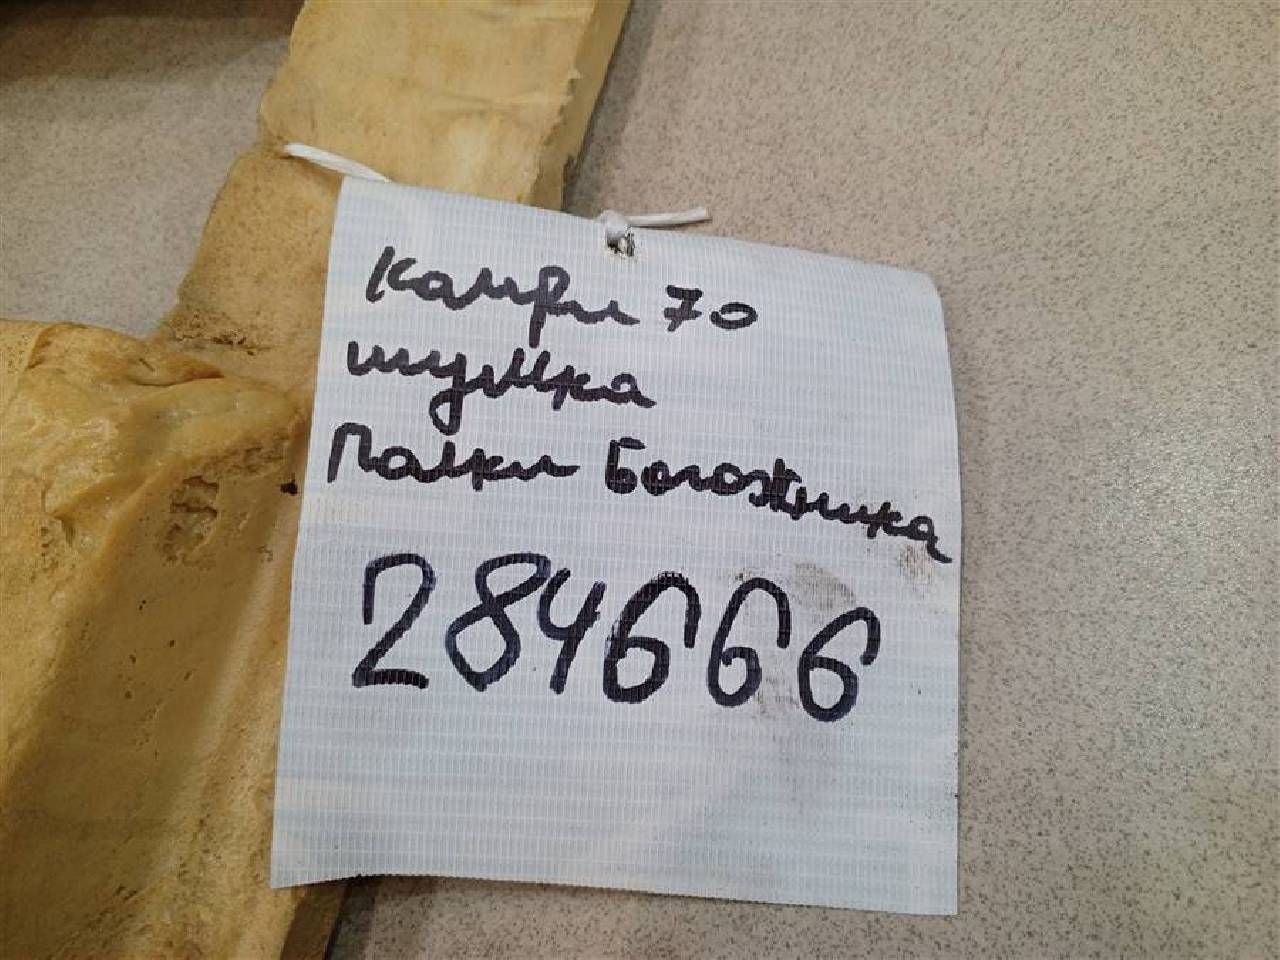 Камри 70
шумка
Полки Богожника
284666